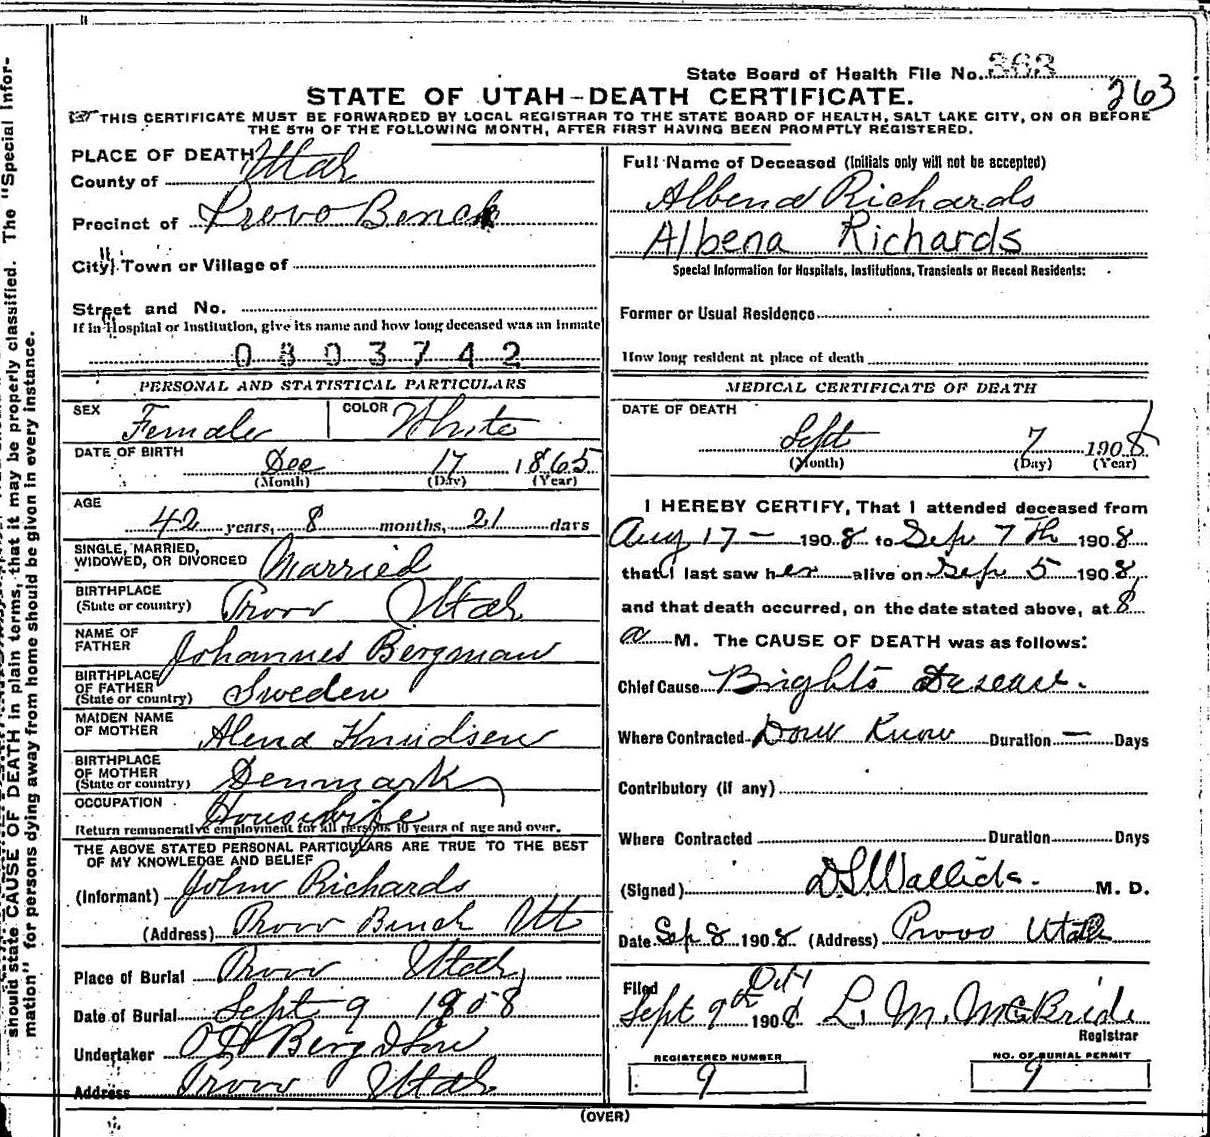 State Board of Health File No. 363
263
STATE OF UTAH-DEATH CERTIFICATE.
THIS CERTIFICATE MUST BE FORWARDED BY LOCAL REGISTRAR TO THE STATE BOARD OF HEALTH, SALT LAKE CITY, ON OR BEFORE
THE 5TH OF THE FOLLOWING MONTH, AFTER FIRST HAVING BEEN PROMPTLY REGISTERED.
PLACE OF DEATH
County of Utah
Precinct of Provo Bench
City, Town or Village of
Street and No.
If in Hospital or Institution, give its name and how long deceased was an inmate
0803742
PERSONAL AND STATISTICAL PARTICULARS
SEX Female COLOR White
DATE OF BIRTH Dec 17 1865
(Month) (Day) (Year)
AGE
42 years, 8 months, 21 days
SINGLE, MARRIED,
WIDOWED, OR DIVORCED Married
BIRTHPLACE
(State or country) Provo Utah
NAME OF
FATHER Johannes Bergman
BIRTHPLACE
OF FATHER
(State or country) Sweden
MAIDEN NAME
OF MOTHER Alena Knudsen
BIRTHPLACE
OF MOTHER
(State or country) Denmark
OCCUPATION Housewife
Return remunerative employment for all persons 10 years of age and over.
THE ABOVE STATED PERSONAL PARTICULARS ARE TRUE TO THE BEST
OF MY KNOWLEDGE AND BELIEF
(Informant) John Richards
(Address) Provo Bench Ut
Place of Burial Provo Utah
Date of Burial Sept 9 1908
Undertaker O H Berg & Son
Address Provo Utah
Full Name of Deceased (Initials only will not be accepted)
Albena Richards
Albena Richards
Special Information for Hospitals, Institutions, Transients or Recent Residents:
Former or Usual Residence
How long resident at place of death
MEDICAL CERTIFICATE OF DEATH
DATE OF DEATH
Sept 7 1908
(Month) (Day) (Year)
I HEREBY CERTIFY, That I attended deceased from
Aug 17 - 1908 to Sep 7Th 1908
that I last saw her alive on Sep 5 1908,
and that death occurred, on the date stated above, at 8
a M. The CAUSE OF DEATH was as follows:
Chief Cause Brights Disease.
Where Contracted Dont Know Duration - Days
Contributory (if any)
Where Contracted Duration Days
(Signed) M. D.
Date Sep 8 1908 (Address) Provo Utah
Filed
Sept 9th 1908 L. M. McBride
Registrar
REGISTERED NUMBER
9
NO. OF BURIAL PERMIT
9
(OVER)
should state CAUSE OF DEATH in plain terms, that it may be properly classified. The "Special Infor-
mation" for persons dying away from home should be given in every instance.